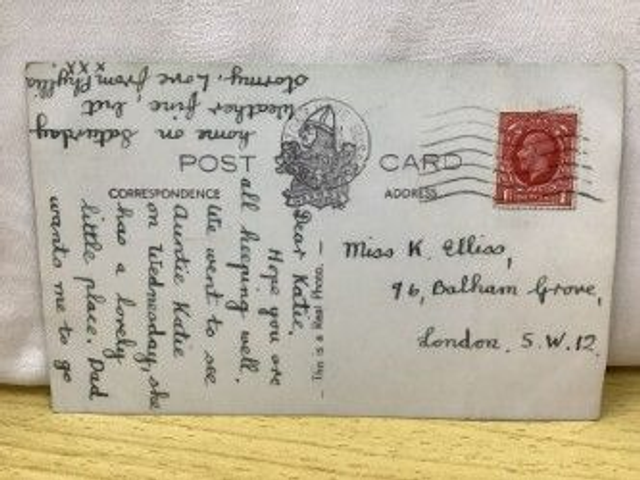 POST CARD
CORRESPONDENCE
ADDRESS
Dear Katie,
Hope you are
all keeping well.
We went to see
Auntie Katie
on Wednesday, she
has a lovely
little place. Dad
wants me to go
home on Saturday
Weather fine, but
stormy. Love from Phyllis
x x x
This is a Real Photo.
Miss K. Elliss,
96, Balham Grove,
London. S.W.12.